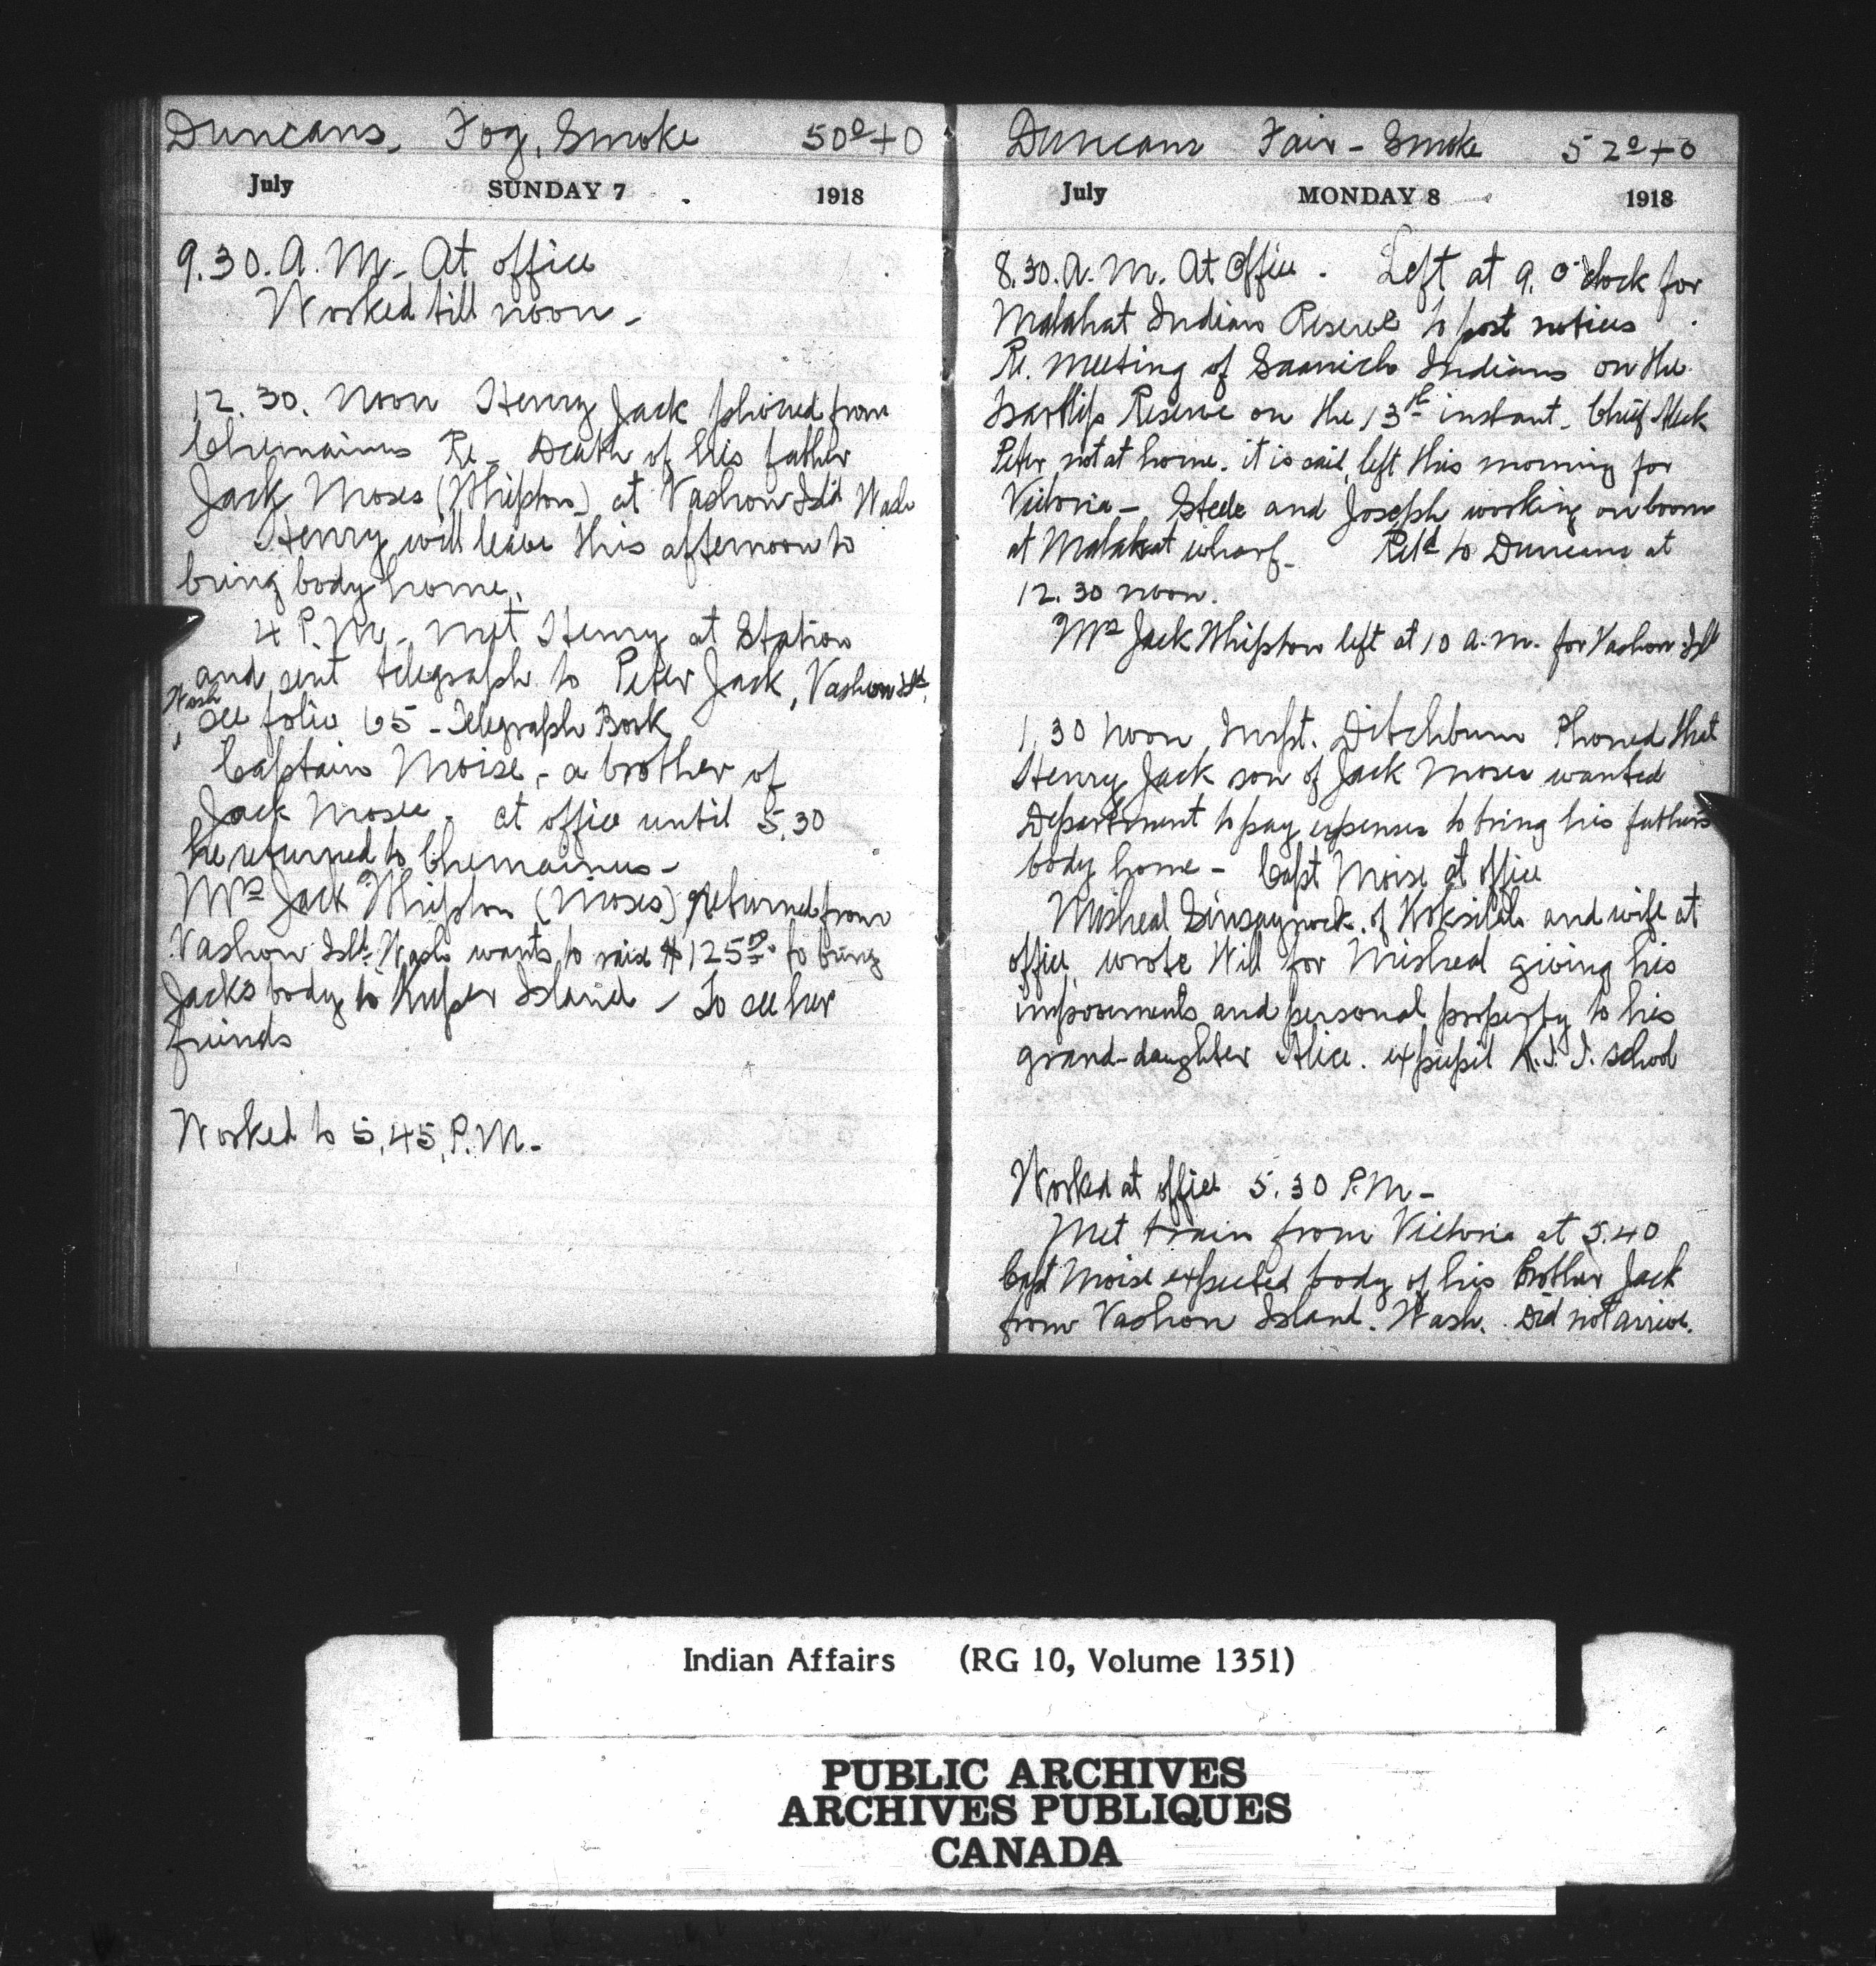 Duncans, Fog, Smoke 50º+0
July SUNDAY 7 1918
9.30. A. M. - At office
Worked till noon -
12.30. Noon Henry Jack phoned from
Chemainus Re - Death of his father
Jack Moses (Whipton) at Vashon Isld Wash
Henry will leave this afternoon to
bring body home.
4 P.M. - met Henry at Station
and sent telegraph to Peter Jack, Vashon Isld,
Wash
see folio 65 - Telegraph Book
Captain Moise, - a brother of
Jack Moses - at office until 5.30
he returned to Chemainus -
Mrs Jack Whipton (Moses) returned from
Vashon Isld Wash wants to raise $125.00 to bring
Jacks body to Kuper Island - To see her
friends
Worked to 5.45, P.M. -
Duncans Fair - Smoke 52º+0
July MONDAY 8 1918
8.30. A. M. At Office. Left at 9. o'clock for
Malahat Indian Reserve to post notices
Re. meeting of Saanich Indians on the
Tsartlip Reserve on the 13th instant. Chief
Peter not at home. it is said left this morning for
Victoria - Steele and Joseph working on boom
at Malahat wharf - Retd to Duncans at
12.30 noon.
Mrs Jack Whipton left at 10 a.m. for Vashon Isld
1.30 Noon Inspt. Ditchburn Phoned that
Henry Jack son of Jack Moses wanted
Department to pay expenses to bring his fathers
body home - Capt Moise at office
Misheal of Koksilah and wife at
office, wrote Will for Misheal giving his
improvements and personal property to his
grand-daughter Alice. expupil K.I.I. School
Worked at office 5.30 P.M -
Met train from Victoria at 5.40
Capt Moise expected body of his Brother Jack
from Vashon Island. Wash. Did not arrive.
Indian Affairs (RG 10, Volume 1351)
PUBLIC ARCHIVES
ARCHIVES PUBLIQUES
CANADA